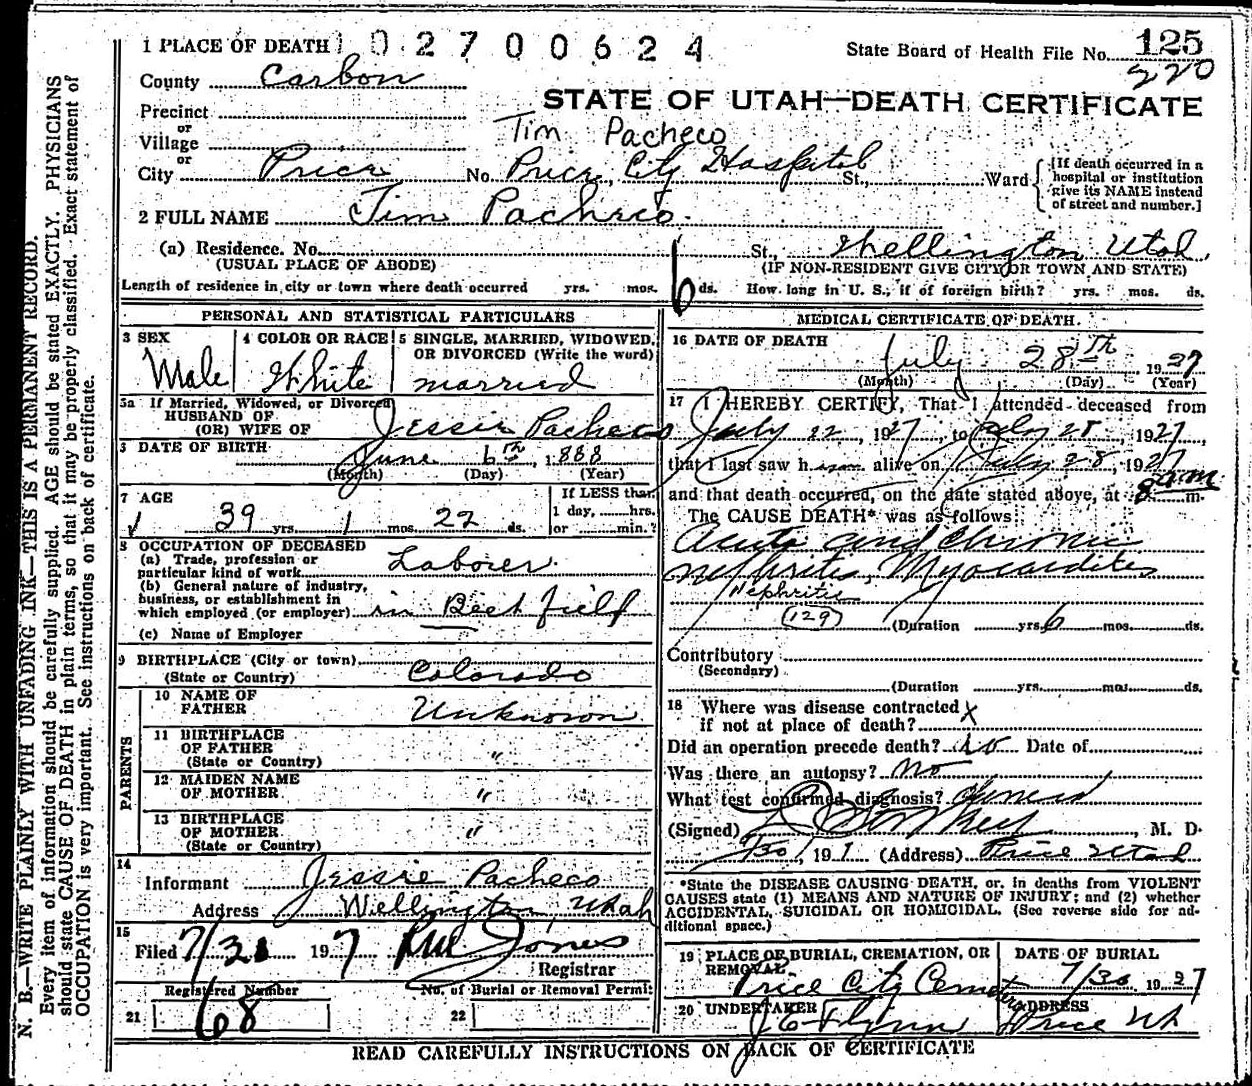 1 PLACE OF DEATH 1 0 2 7 0 0 6 2 4
State Board of Health File No. 125
220
County Carbon
STATE OF UTAH—DEATH CERTIFICATE
Precinct
or
Village
Tim Pacheco
or
City Price No. Price City Hospital St., Ward
[If death occurred in a hospital or institution give its NAME instead of street and number.]
2 FULL NAME Tim Pacheco.
(a) Residence. No. St., Wellington Utah.
(USUAL PLACE OF ABODE) (IF NON-RESIDENT GIVE CITY OR TOWN AND STATE)
Length of residence in city or town where death occurred yrs. mos. 6 ds. How long in U. S., if of foreign birth? yrs. mos. ds.
PERSONAL AND STATISTICAL PARTICULARS
3 SEX
Male
4 COLOR OR RACE
White
5 SINGLE, MARRIED, WIDOWED, OR DIVORCED (Write the word)
married
5a If Married, Widowed, or Divorced
HUSBAND OF
(OR) WIFE OF Jessie Pacheco
6 DATE OF BIRTH June 6th, 1888
(Month) (Day) (Year)
7 AGE
39 yrs. 1 mos. 22 ds.
If LESS than 1 day, hrs. or min.?
8 OCCUPATION OF DECEASED
(a) Trade, profession or particular kind of work Laborer.
(b) General nature of industry, business, or establishment in which employed (or employer) in Beet field
(c) Name of Employer
9 BIRTHPLACE (City or town)
(State or Country) Colorado
PARENTS
10 NAME OF FATHER Unknown
11 BIRTHPLACE OF FATHER (State or Country) "
12 MAIDEN NAME OF MOTHER "
13 BIRTHPLACE OF MOTHER (State or Country) "
14
Informant Jessie Pacheco
Address Wellington, Utah
15
Filed 7/30 1927 Jones
Registrar
Registered Number No. of Burial or Removal Permit
21 68 22
MEDICAL CERTIFICATE OF DEATH.
16 DATE OF DEATH
July 28th 1927
(Month) (Day) (Year)
17 I HEREBY CERTIFY, That I attended deceased from
July 22, 1927, to July 28, 1927,
that I last saw him alive on July 28, 1927
and that death occurred, on the date stated above, at 8 am m.
The CAUSE DEATH* was as follows:
Acute and Chronic
nephritis, Myocarditis
Nephritis
(129) (Duration yrs. 6 mos. ds.
Contributory
(Secondary)
(Duration yrs. mos. ds.
18 Where was disease contracted
if not at place of death? x
Did an operation precede death? no Date of
Was there an autopsy? No
What test confirmed diagnosis?
(Signed) , M. D.
7/30, 19 (Address) Price Utah
*State the DISEASE CAUSING DEATH, or, in deaths from VIOLENT CAUSES state (1) MEANS AND NATURE OF INJURY; and (2) whether ACCIDENTAL, SUICIDAL OR HOMICIDAL. (See reverse side for additional space.)
19 PLACE OF BURIAL, CREMATION, OR REMOVAL
Price City Cemetery
DATE OF BURIAL
7/30 1927
20 UNDERTAKER
J E Flynn
ADDRESS
Price Ut
READ CAREFULLY INSTRUCTIONS ON BACK OF CERTIFICATE
N. B.—WRITE PLAINLY WITH UNFADING INK—THIS IS A PERMANENT RECORD.
Every item of information should be carefully supplied. AGE should be stated EXACTLY. PHYSICIANS
should state CAUSE OF DEATH in plain terms, so that it may be properly classified. Exact statement of
OCCUPATION is very important. See instructions on back of certificate.